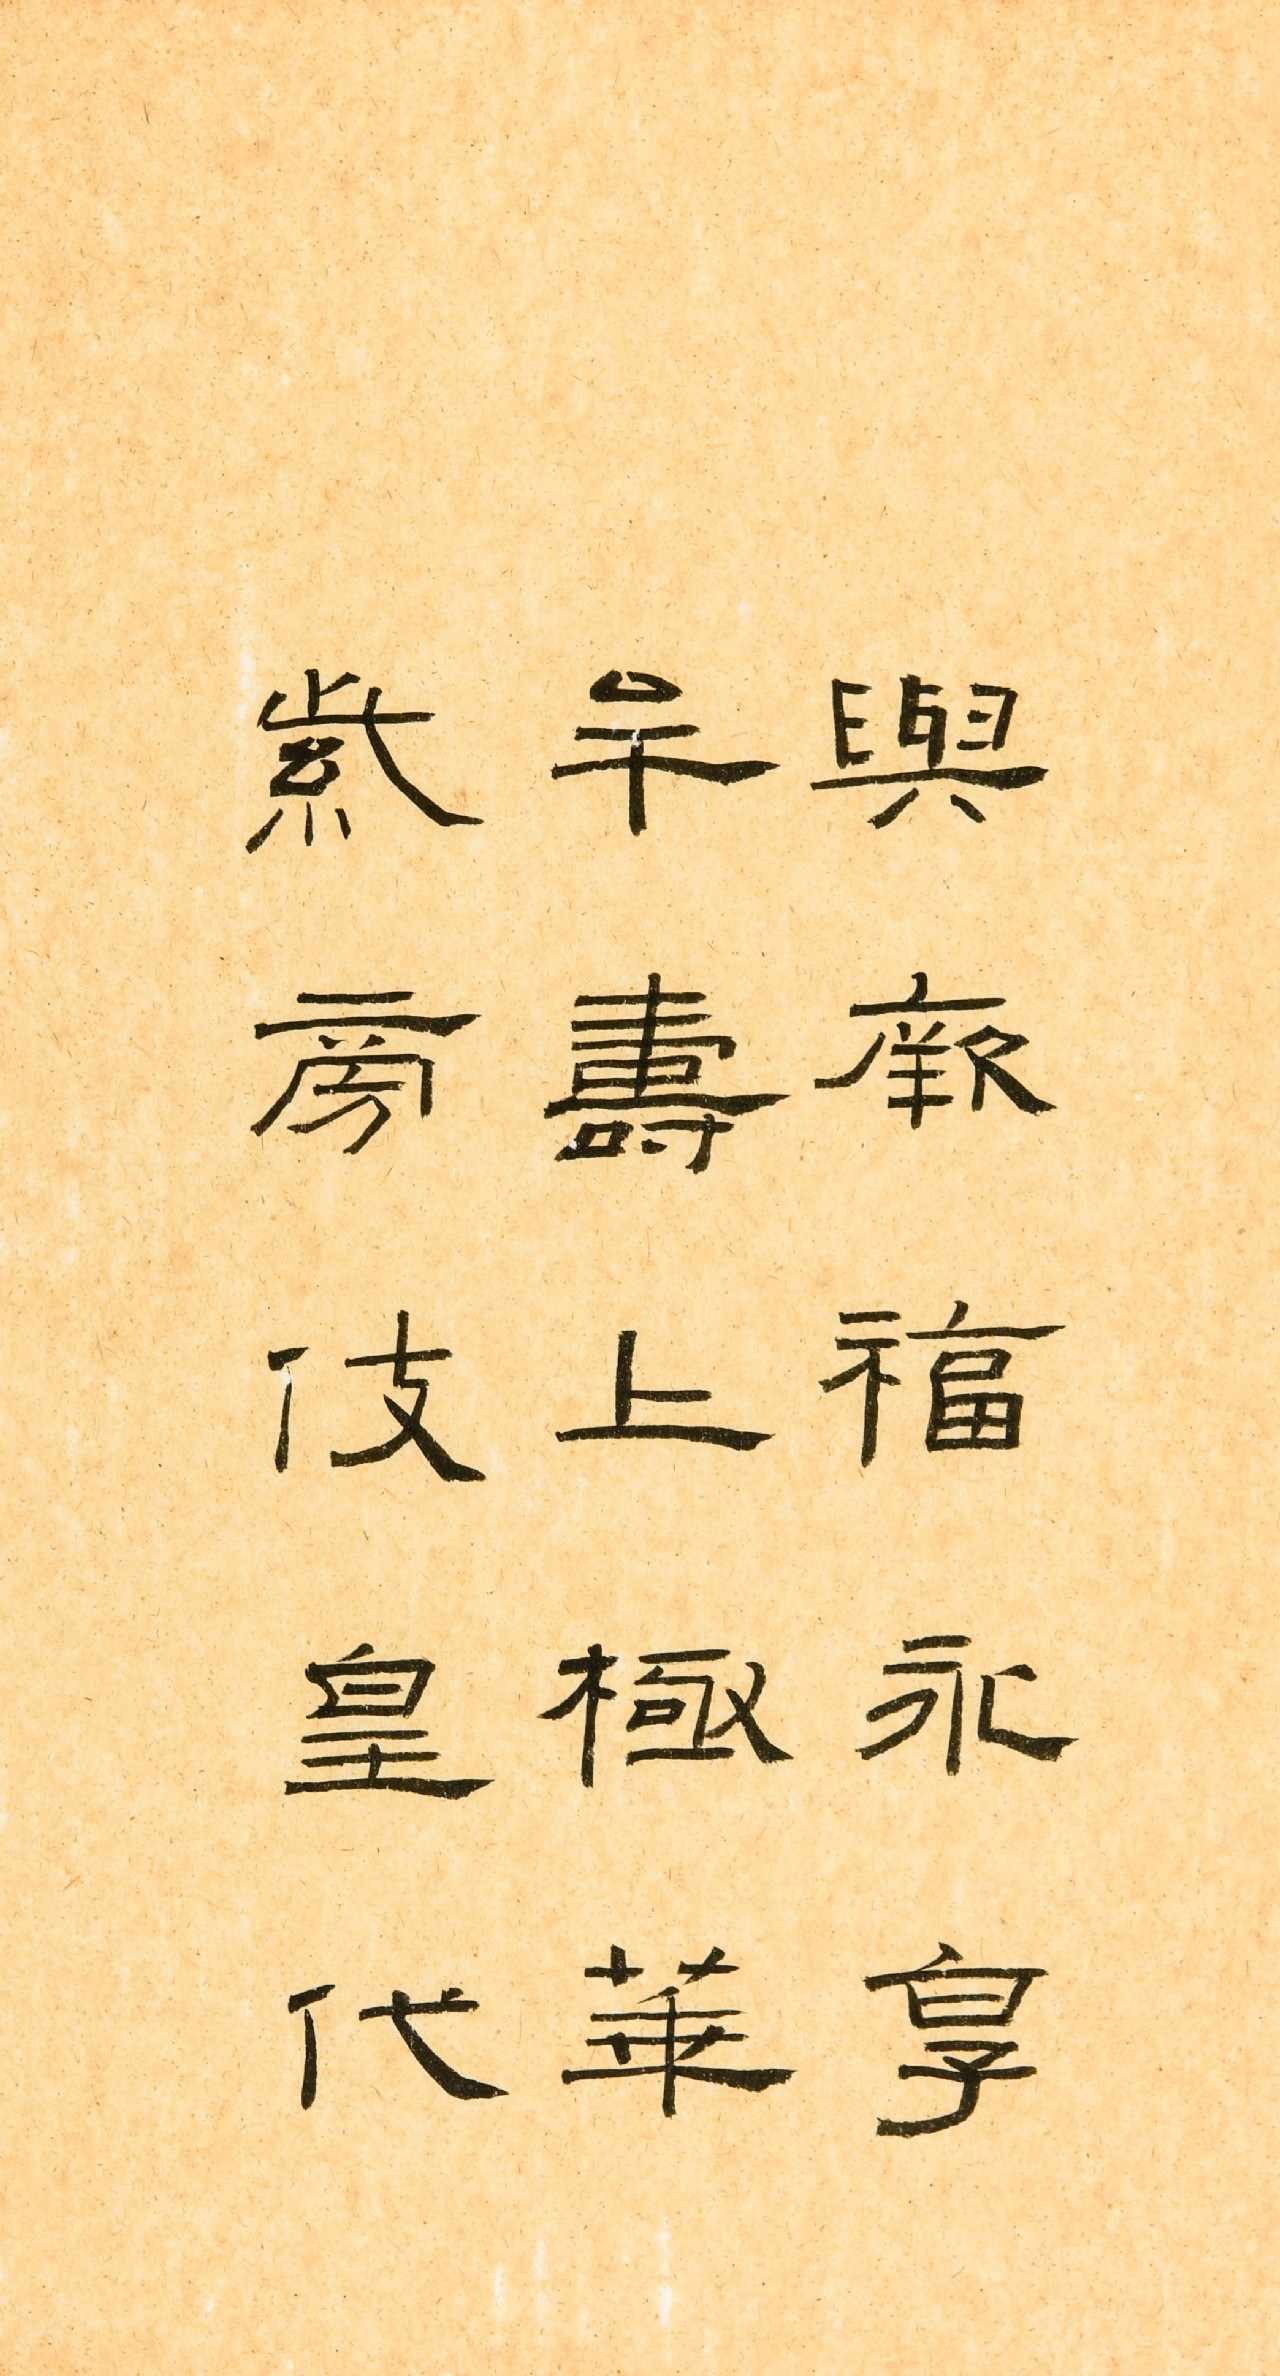 與厥福永享
牟壽上極華
紫旁伎皇代